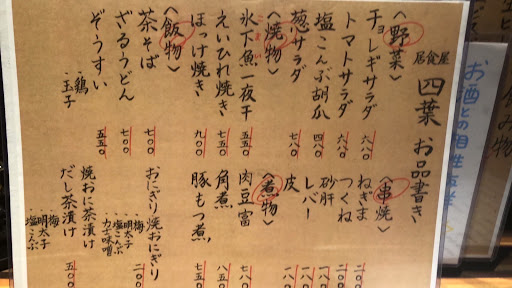 居食屋 四葉 お品書き
〈野菜〉
チョレギサラダ 六八〇
トマトサラダ 六八〇
塩こんぶ胡瓜 四八〇
葱サラダ 七八〇
〈焼物〉
こまい
氷下魚一夜干 五五〇
えいひれ焼き
ほっけ焼き 九〇〇
〈飯物〉
茶そば 七〇〇
ざるうどん 七〇〇
ぞうすい 五五〇
・鶏
・玉子
〈串焼〉
ねぎま 二〇〇
つくね 二〇〇
砂肝 一八〇
レバー 一八〇
皮 一八〇
〈煮物〉
肉豆富 七八〇
角煮 八五〇
豚もつ煮 七五〇
おにぎり 焼おにぎり 二〇〇
・梅
・明太子
・塩こんぶ
・力士味噌
焼おに茶漬け
だし茶漬け 五〇〇
・梅
・明太子
・塩こんぶ
お酒との相性
み物